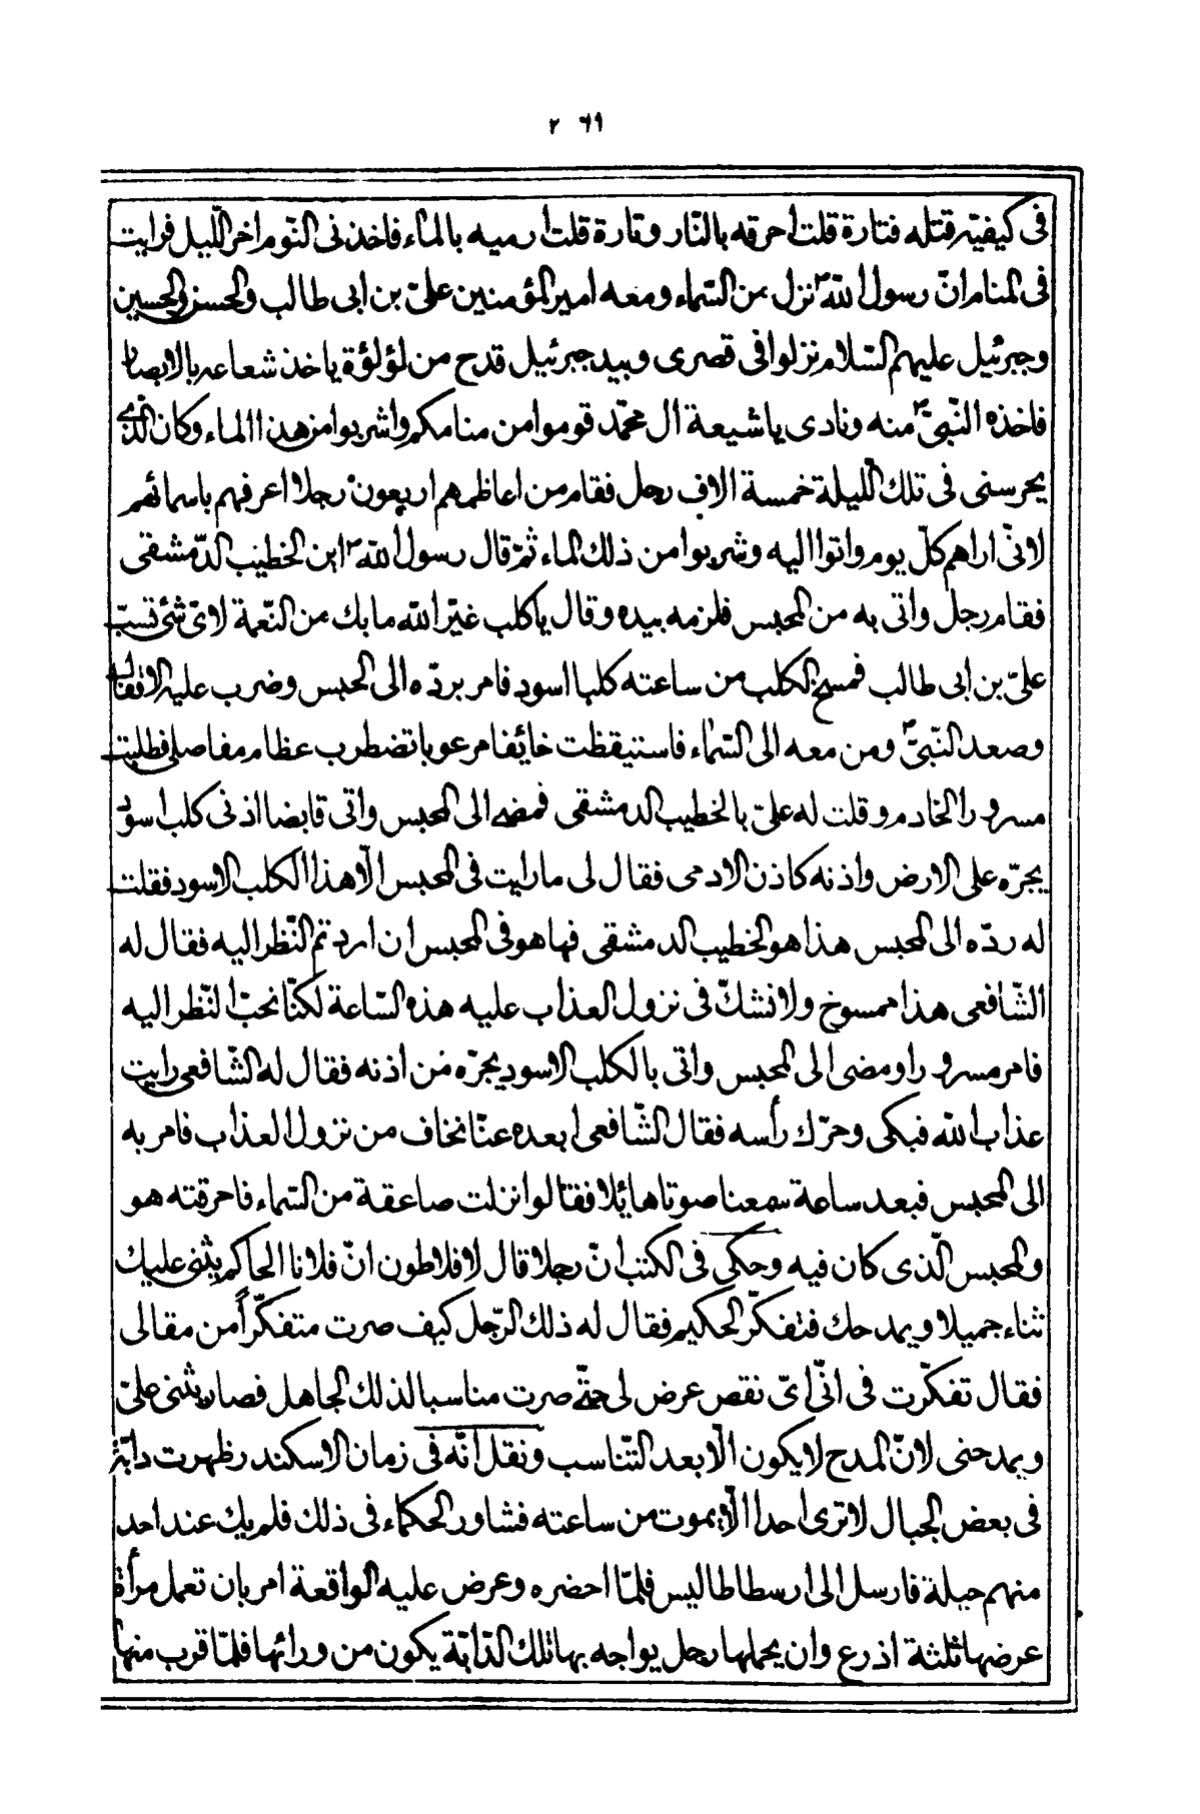 ٢٦٩
فى كيفيّة قتله فتارة قلت احرقه بالنّار وتارة قلت ارميه بالماء فاخذنى النّوم اخر اللّيل فرايت
فى المنام انّ رسول اللّه ص نزل من السّماء ومعه امير المؤمنين علىّ بن ابى طالب والحسن والحسين
وجبرئيل عليهم السّلام نزلوا فى قصرى وبيد جبرئيل قدح من لؤلؤة ياخذ شعاعه بالابصار
فاخذه النّبىّ ص منه ونادى يا شيعة ال محمّد قوموا من منامكم واشربوا من هذا الماء وكان الّذى
يحرسنى فى تلك اللّيلة خمسة الاف رجل فقام من اعاظمهم اربعون رجلا اعرفهم باسمائهم
لانّى اراهم كلّ يوم واتوا اليه وشربوا من ذلك الماء ثمّ قال رسول اللّه ص اين الخطيب الدّمشقى
فقام رجل واتى به من المحبس فلزمه بيده وقال يا كلب غيّر اللّه ما بك من النّعمة لاىّ شئ تسبّ
علىّ بن ابى طالب فمسخ الكلب من ساعته كلبا اسود فامر بردّه الى الحبس وضرب عليه الاقفال
وصعد النّبىّ ص ومن معه الى السّماء فاستيقظت خائفا مرعوبا تضطرب عظام مفاصلى فطلبت
مسرورا الخادم وقلت له علىّ بالخطيب الدمشقى فمضى الى المحبس واتى قابضا اذنى كلب اسود
يجرّه على الارض واذنه كاذن الادمى فقال لى ما رايت فى المحبس الّا هذا الكلب الاسود فقلت
له ردّه الى المحبس هذا هو الخطيب الدمشقى فها هو فى المحبس ان اردتم النّظر اليه فقال له
الشّافعى هذا ممسوخ ولا نشكّ فى نزول العذاب عليه هذه السّاعة لكنّا نحبّ النّظر اليه
فامر مسرورا ومضى الى المحبس واتى بالكلب الاسود يجرّه من اذنه فقال له الشّافعى رايت
عذاب اللّه فبكى وحرّك رأسه فقال الشّافعى ابعده عنّا نخاف من نزول العذاب فامر به
الى المحبس فبعد ساعة سمعنا صوتا هائلا فقالوا نزلت صاعقة من السّماء فاحرقته هو
والمحبس الّذى كان فيه وحكى فى الكتب انّ رجلا قال لافلاطون انّ فلانا الحاكم يثنى عليك
ثناء جميلا ويمدحك فتفكّر الحكيم فقال له ذلك الرّجل كيف صرت متفكّراً من مقالى
فقال تفكّرت فى انّى اىّ نقص عرض لى حتّى صرت مناسبا لذلك الجاهل فصار يثنى علىّ
ويمدحنى لانّ المدح لا يكون الّا بعد التّناسب ونقل انّه فى زمان الاسكندر ظهرت دابّة
فى بعض الجبال لا ترى احدا الّا يموت من ساعته فشاور الحكماء فى ذلك فلم يك عند احد
منهم حيلة فارسل الى ارسطاطاليس فلمّا احضره وعرض عليه الواقعة امر بان تعمل مرأة
عرضها ثلثة اذرع وان يحملها رجل يواجه بها تلك الدّابّة يكون من ورائها فلمّا قرب منها